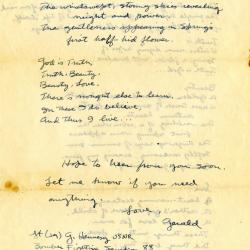 The windswept, stormy skies revealing
might and power.
The gentleness appearing in Spring's
first half hid flower.
God is Truth,
Truth, Beauty,
Beauty, Love.
There is nought else to learn.
In these I do believe,
And thus I live.
Hope to hear from you soon.
Let me know if you need
anything.
Love,
Gerald
Lt (jg) G. USNR
Bombing Fighting Squadron 88